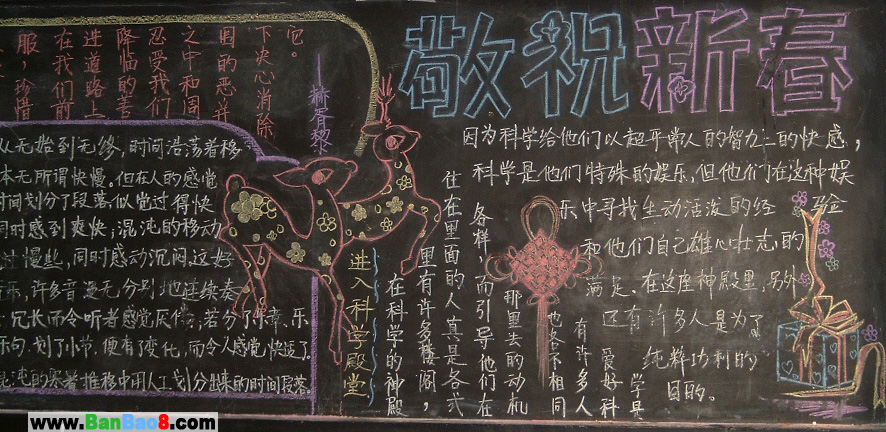 它。
下决心消除
围的恶并
之中和周
忍受我们
降临的善
进道路上
在我们前
服，珍惜
敬祝新春
从无始到无终，时间浩荡着移
本无所谓快慢。但在人的感觉
时间划分了段落似觉过得快
同时感到爽快；混沌的移动
过慢些，同时感动沉闷。这好
乐，许多音漫无分别地连续奏
冗长而令听者感觉厌倦；若分了乐章、乐
乐句，划了小节，便有变化，而令人感觉快适了。
混沌的寒暑推移中用人工划分出来的时间段落。
进入科学殿堂
在科学的神殿
里有许多楼阁，
住在里面的人真是各式
各样，而引导他们在
那里去的动机
也各不相同
有许多人
爱好科
学是
因为科学给他们以超乎常人的智力上的快感，
科学是他们特殊的娱乐，但他们在这种娱
乐中寻找生动活泼的经验
和他们自己雄心壮志的
满足、在这座神殿里，另外
还有许多人是为了
纯粹功利的
目的。
www.BanBao8.com